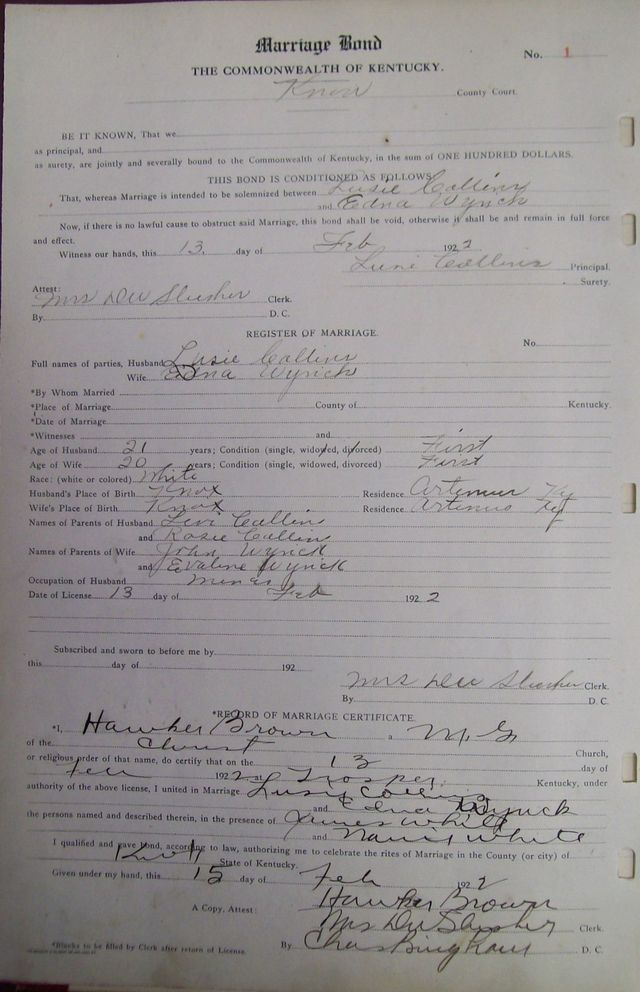 Marriage Bond
No. 1
THE COMMONWEALTH OF KENTUCKY.
Knox County Court.
BE IT KNOWN, That we
as principal, and
as surety, are jointly and severally bound to the Commonwealth of Kentucky, in the sum of ONE HUNDRED DOLLARS.
THIS BOND IS CONDITIONED AS FOLLOWS
That, whereas Marriage is intended to be solemnized between Lusie Collins
and Edna Wynck
Now, if there is no lawful cause to obstruct said Marriage, this bond shall be void, otherwise it shall be and remain in full force
and effect.
Witness our hands, this 13. day of Feb 1922
Collins Principal.
Surety.
Attest:
Mrs Slusher Clerk.
By D. C.
REGISTER OF MARRIAGE.
No.
Full names of parties, Husband Lusie Collins
Wife Edna Wynck
*By Whom Married
*Place of Marriage County of Kentucky.
*Date of Marriage
*Witnesses and
Age of Husband 21 years; Condition (single, widowed, divorced) First
Age of Wife 20 years; Condition (single, widowed, divorced) First
Race: (white or colored) White
Husband's Place of Birth Knox Residence Artemus Ky
Wife's Place of Birth Knox Residence Artemus Ky
Names of Parents of Husband Levi Collin
and Rosie Collin
Names of Parents of Wife John Wynck
and Evaline Wynck
Occupation of Husband
Date of License 13 day of Feb 1922
Subscribed and sworn to before me by
this day of 192
Mrs Slusher Clerk.
By D. C.
*RECORD OF MARRIAGE CERTIFICATE.
*I, Hawker Brown a M. G
of the Christ Church,
or religious order of that name, do certify that on the 13 day of
Feb 1922 at Trosper, Kentucky, under
authority of the above license, I united in Marriage Collins
and Edna Wynck
the persons named and described therein, in the presence of James White
and White
I qualified and gave bond, according to law, authorizing me to celebrate the rites of Marriage in the County (or city) of
State of Kentucky.
Given under my hand, this 15 day of Feb 1922
Hawker Brown
A Copy, Attest: Mrs Slusher Clerk.
*Blanks to be filled by Clerk after return of License. By Chas Bingham D. C.